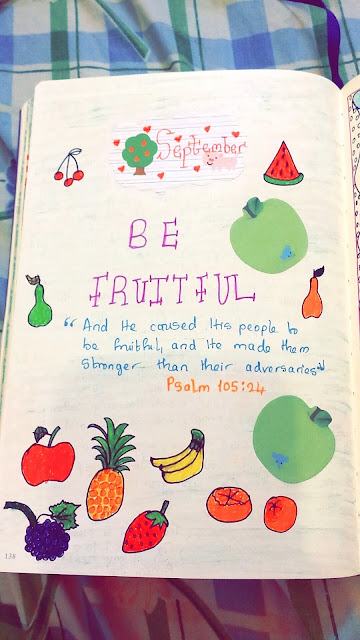 September
BE
FRUITFUL
“And He caused His people to
be fruitful, and He made them
Stronger than their adversaries”
Psalm 105:24
138